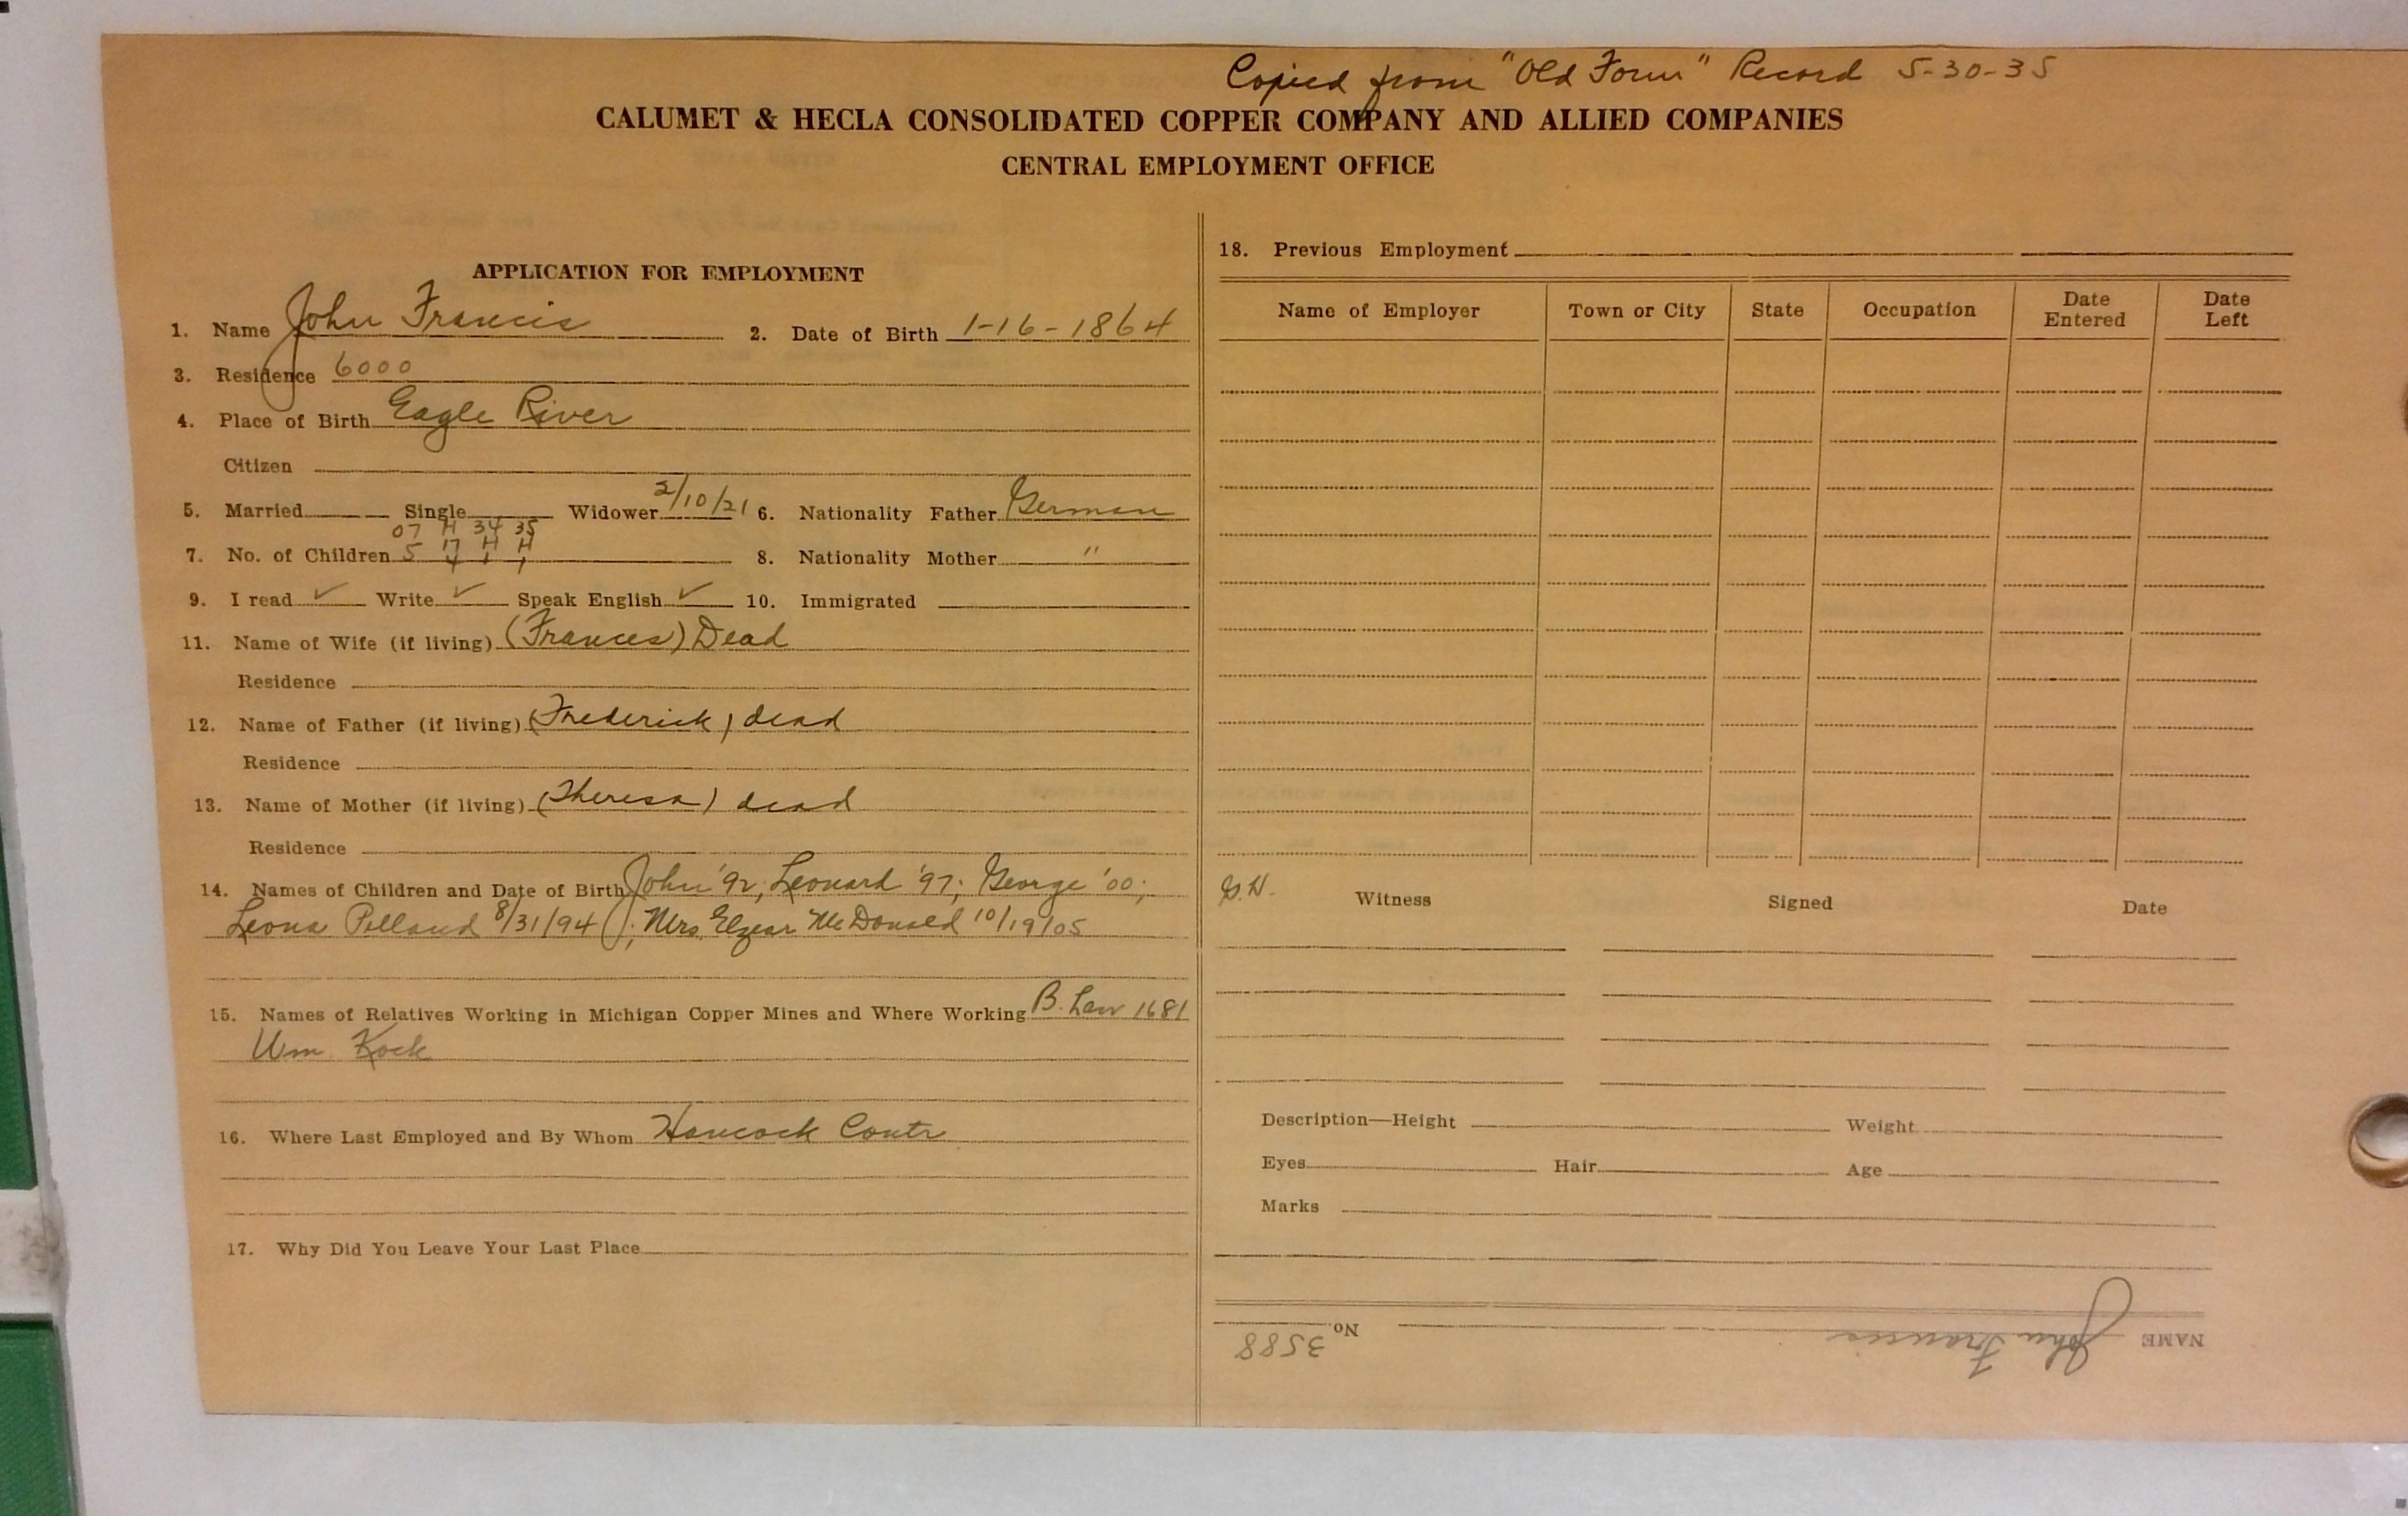 Copied from "Old Form" Record 5-30-35
CALUMET & HECLA CONSOLIDATED COPPER COMPANY AND ALLIED COMPANIES
CENTRAL EMPLOYMENT OFFICE
APPLICATION FOR EMPLOYMENT
1. Name John Francis 2. Date of Birth 1-16-1864
3. Residence 6000
4. Place of Birth Eagle River
Citizen
5. Married Single Widower 2/10/21 6. Nationality Father German
07 H 34 35
7. No. of Children 5 17 H H 8. Nationality Mother "
4 1 1
9. I read ✓ Write ✓ Speak English ✓ 10. Immigrated
11. Name of Wife (if living) (Frances) Dead
Residence
12. Name of Father (if living) (Frederick) dead
Residence
13. Name of Mother (if living) (Theresa) dead
Residence
14. Names of Children and Date of Birth John '92; Leonard '97; George '00;
Leona 8/31/94; Mrs. Elzear McDonald 10/19/05
15. Names of Relatives Working in Michigan Copper Mines and Where Working B. Law 1681
Wm Kock
16. Where Last Employed and By Whom Hancock Contr
17. Why Did You Leave Your Last Place
18. Previous Employment
Name of Employer Town or City State Occupation Date Entered Date Left
G.H. Witness Signed Date
Description—Height Weight
Eyes Hair Age
Marks
NAME John Francis No. 3588